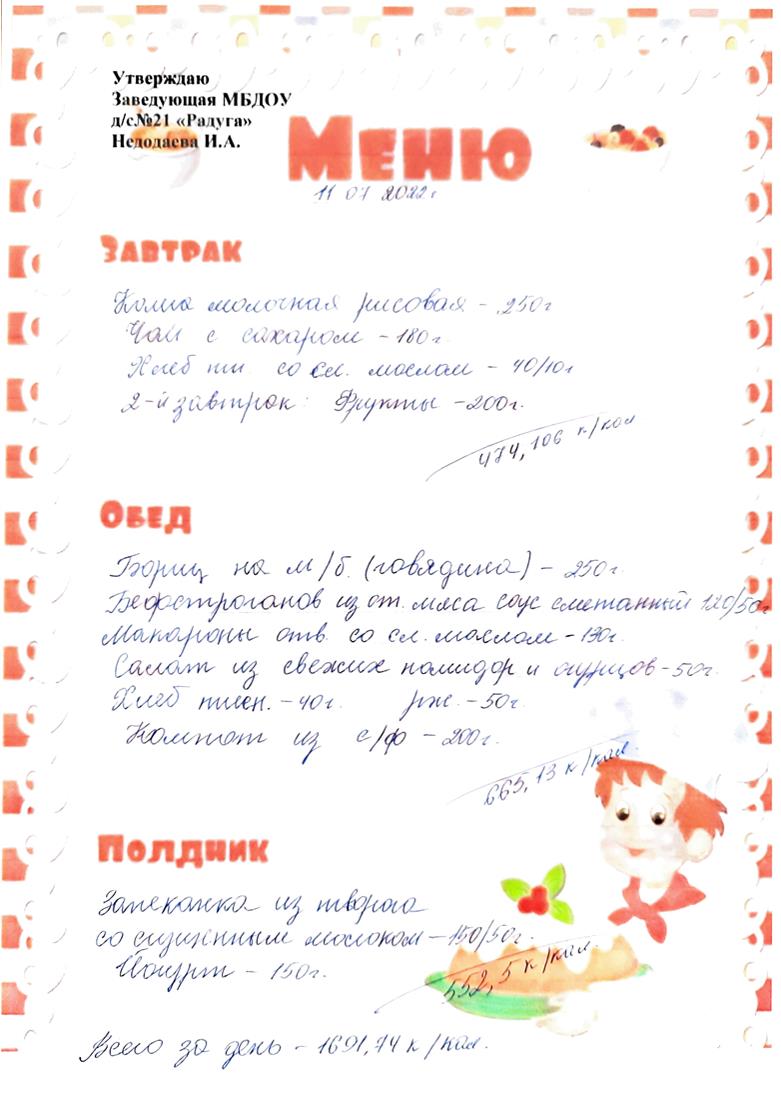 Утверждаю
Заведующая МБДОУ
д/с№21 «Радуга»
Недодаева И.А.
Меню
11 07 2022г
Завтрак
Каша молочная рисовая - 250г
Чай с сахаром - 180г.
Хлеб пш со сл. маслом - 40/10г
2-й завтрак: Фрукты - 200г.
474,106 к/кал
Обед
Борщ на м/б. (говядина) - 250г.
Бефстроганов из от. мяса соус сметанный 120/50г
Макароны отв. со сл. маслом - 130г.
Салат из свежих помидор и огурцов - 50г.
Хлеб пшен. - 40г. рж. - 50г.
Компот из с/ф - 200г.
665,13 к/кал.
Полдник
Запеканка из творога
со сгущенным молоком - 150/50г.
Йогурт - 150г.
552,5 к/кал.
Всего за день - 1691,74 к/кал.